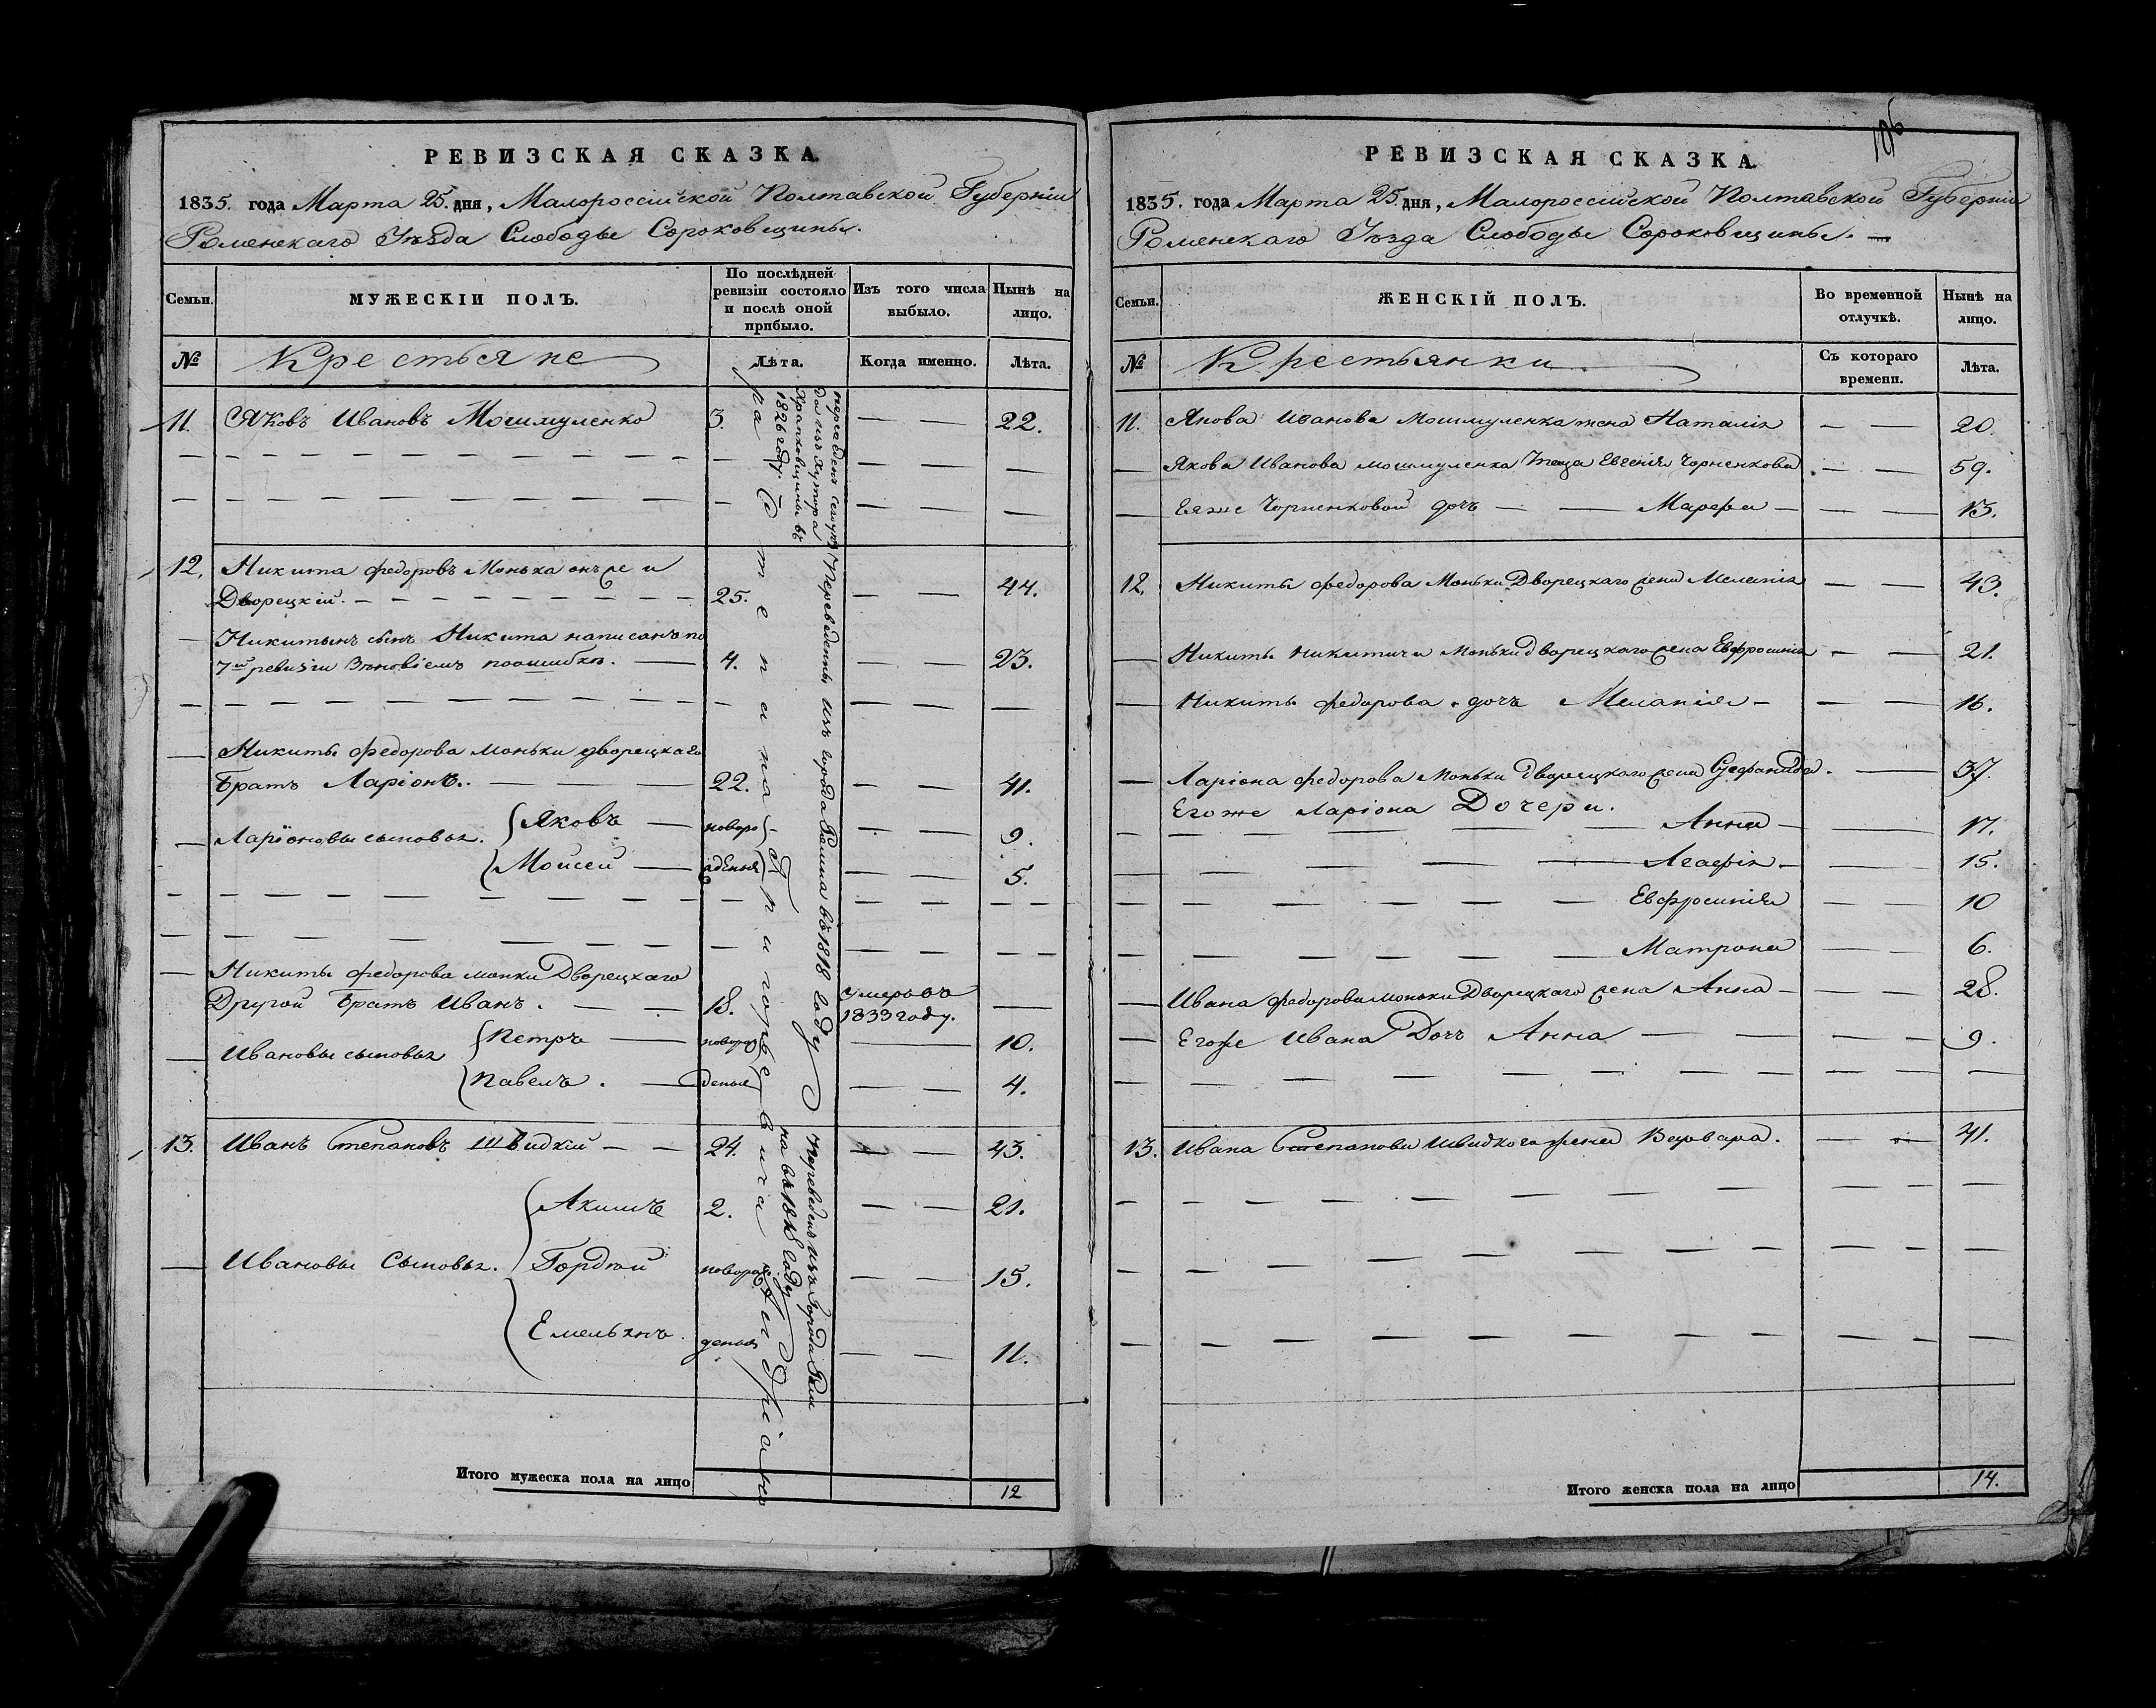 РЕВИЗСКАЯ СКАЗКА.
1835. года Марта 25. дня, Малороссійской Полтавской Губерніи
Роменскаго Уѣзда Слободы Сороковщины.
Семьи.
МУЖЕСКІИ ПОЛЪ.
По послѣдней
ревизіи состояло
и послѣ оной
прибыло.
Изъ того числа
выбыло.
Нынѣ на
лицо.
№
Крестьяне
Лѣта.
Когда именно.
Лѣта.
11. Яковъ Ивановъ Мошмуленко 3. — — 22.
12. Никита Федоровъ Монька онъ же и
Дворецкій. 25. — — 44.
Никитынъ сынъ Никита написанъ по
7й ревизіи Зѣновіемъ поошибкѣ. — 4. — — 23.
Никиты Федорова Моньки дворецкаго
Братъ Ларіонъ. — 22. — — 41.
Ларіоновы сыновья. Яковъ — новоро — — 9.
Мойсей — жденыя — — 5.
Никиты Федорова Моньки Дворецкаго
Другой Братъ Иванъ. — 18. умеръ въ 1833 году. —
Ивановы сыновья Петръ — новорож — 10.
Павелъ. — деные — — 4.
13. Иванъ Степановъ Швидкій — — 24. — — 43.
Акимъ 2. — — 21.
Ивановы Сыновья. Гордѣй новорож — — 15.
Емельянъ. деныя — — 11.
1826 году.
Переведены изъ города Ромна въ 1818 году
Переведенъ изъ Города Ром
на въ 1818 году
Итого мужеска пола на лицо
12
106
РЕВИЗСКАЯ СКАЗКА.
1835. года Марта 25. дня, Малороссійской Полтавской Губерніи
Роменскаго Уѣзда Слободы Сороковщины. —
Семьи.
ЖЕНСКІЙ ПОЛЪ.
Во временной
отлучкѣ.
Нынѣ на
лицо.
№
Крестьянки
Съ котораго
времени.
Лѣта.
11. Якова Иванова Мошмуленка жена Наталія — — 20.
— Якова Иванова Мошмуленка теща Евгенія Чорненкова — — 59.
— Еяже Чорненковой дочь — — Марфа — — — 13.
12. Никиты Федорова Моньки Дворецкаго жена Меланія — — 43.
— Никиты Никитича Моньки дворецкаго жена Евфросинія — — 21.
— Никиты Федорова дочь Меланія — — — 16.
— Ларіона Федорова Моньки Дворецкаго жена — 37.
Егоже Ларіона Дочери.
Анна — — 17.
Агафія — — 15.
Евфросинія — — 10
Матрона — — 6.
— Ивана Федорова Моньки Дворецкаго жена Анна — — — 28.
— Егоже Ивана Дочь Анна — — — — 9.
13. Ивана Степанова Швидкого жена Варвара. — — 41.
Итого женска пола на лицо
14.